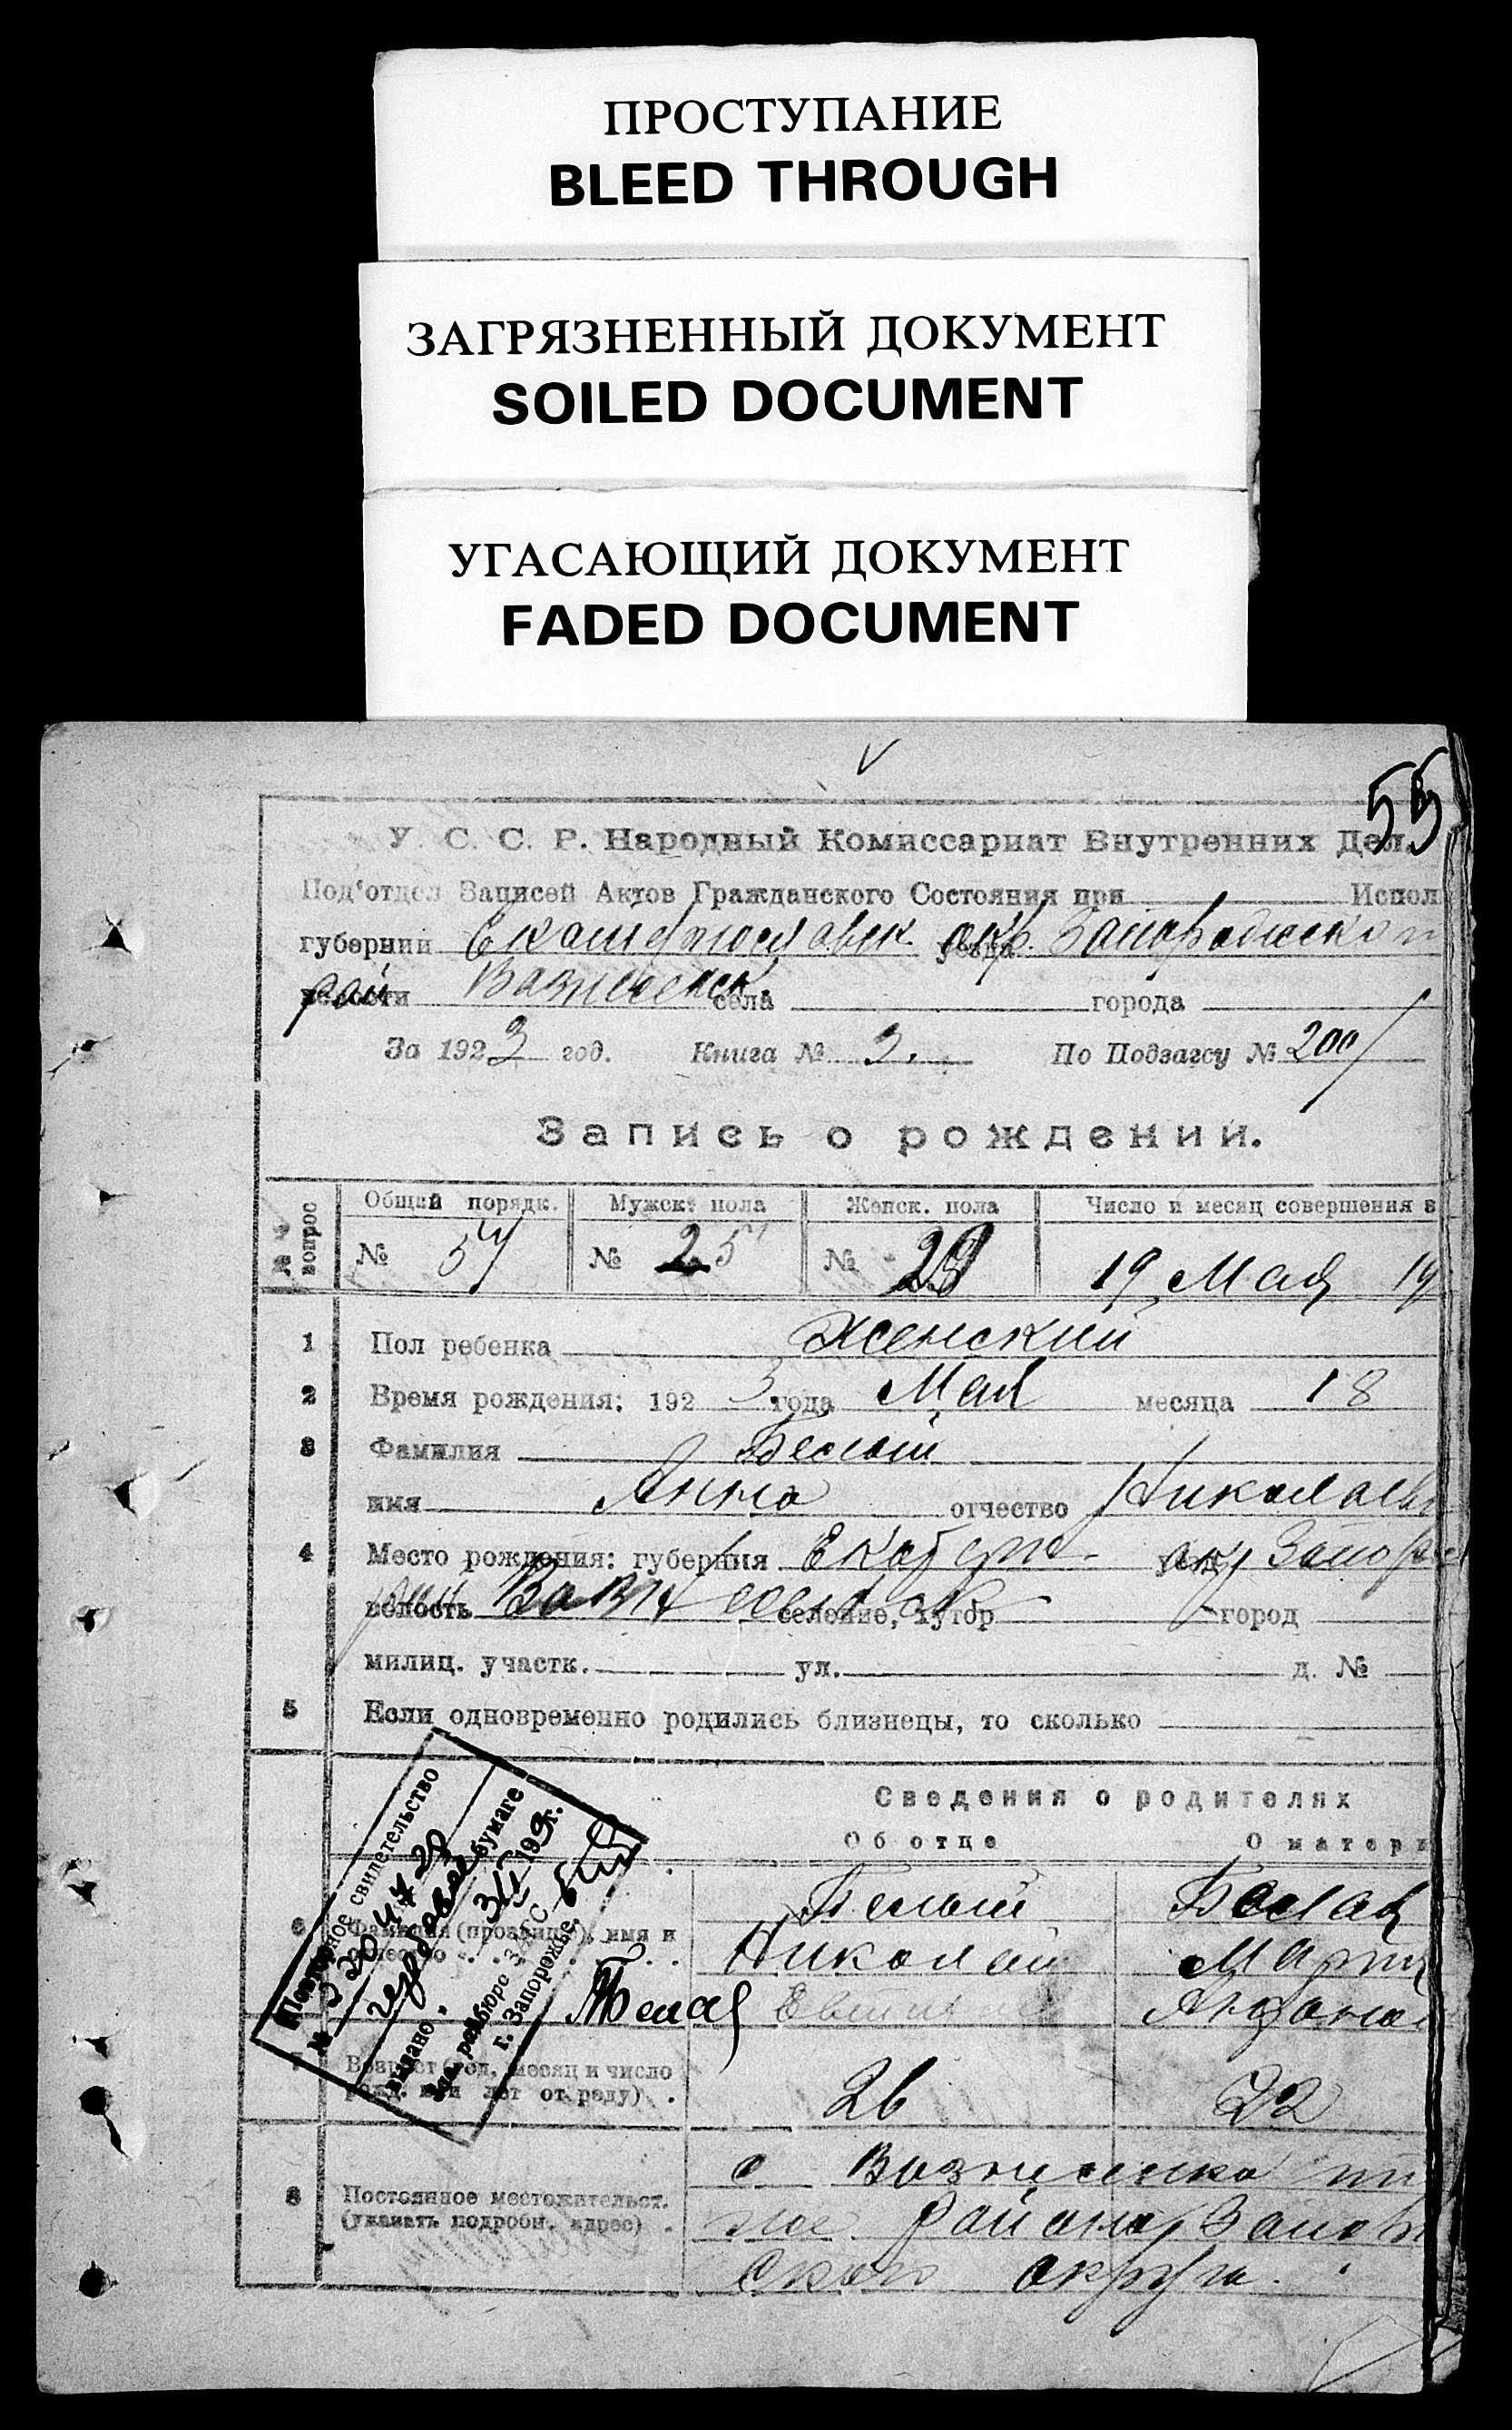 ПРОСТУПАНИЕ
BLEED THROUGH
ЗАГРЯЗНЕННЫЙ ДОКУМЕНТ
SOILED DOCUMENT
УГАСАЮЩИЙ ДОКУМЕНТ
FADED DOCUMENT
55
У. С. С. Р. Народный Комиссариат Внутренних Дел.
Под'отдел Записей Актов Гражданского Состояния при Испол
губернии Екатеринославск. уезда окр. Запорожско
волости рай Вознесенск. села города
За 1923 год. Книга № 3. По Подзагсу № 200
Запись о рождении.
вопрос Общий порядк. Мужск. пола Женск. пола Число и месяц совершения
№ 57 № 25 № 29 19 Мая 19
1 Пол ребенка Женский
2 Время рождения: 1923 года Мая месяца 18
3 Фамилия Белый
имя Анна отчество Николаев
4 Место рождения: губерния Екатерин. уезд окр Запорж
волость рай Вознесенск селение, хутор город
милиц. участк. ул. д. №
5 Если одновременно родились близнецы, то сколько
Сведения о родителях
Об отце О матери
Повторное свидетельство
№
гербовой бумаге
выдано " 199 г.
Зав. райбюро ЗАГС
г. Запорожье.
6 Фамилия (прозвище), имя и отчество Белый Белая
Николай Мария
Белая
7 Возраст (год, месяц и число рожд. или лет от роду) 26 22
8 Постоянное местожительст. (указать подробн. адрес) с Вознесенка
района Запорж
ского округа.